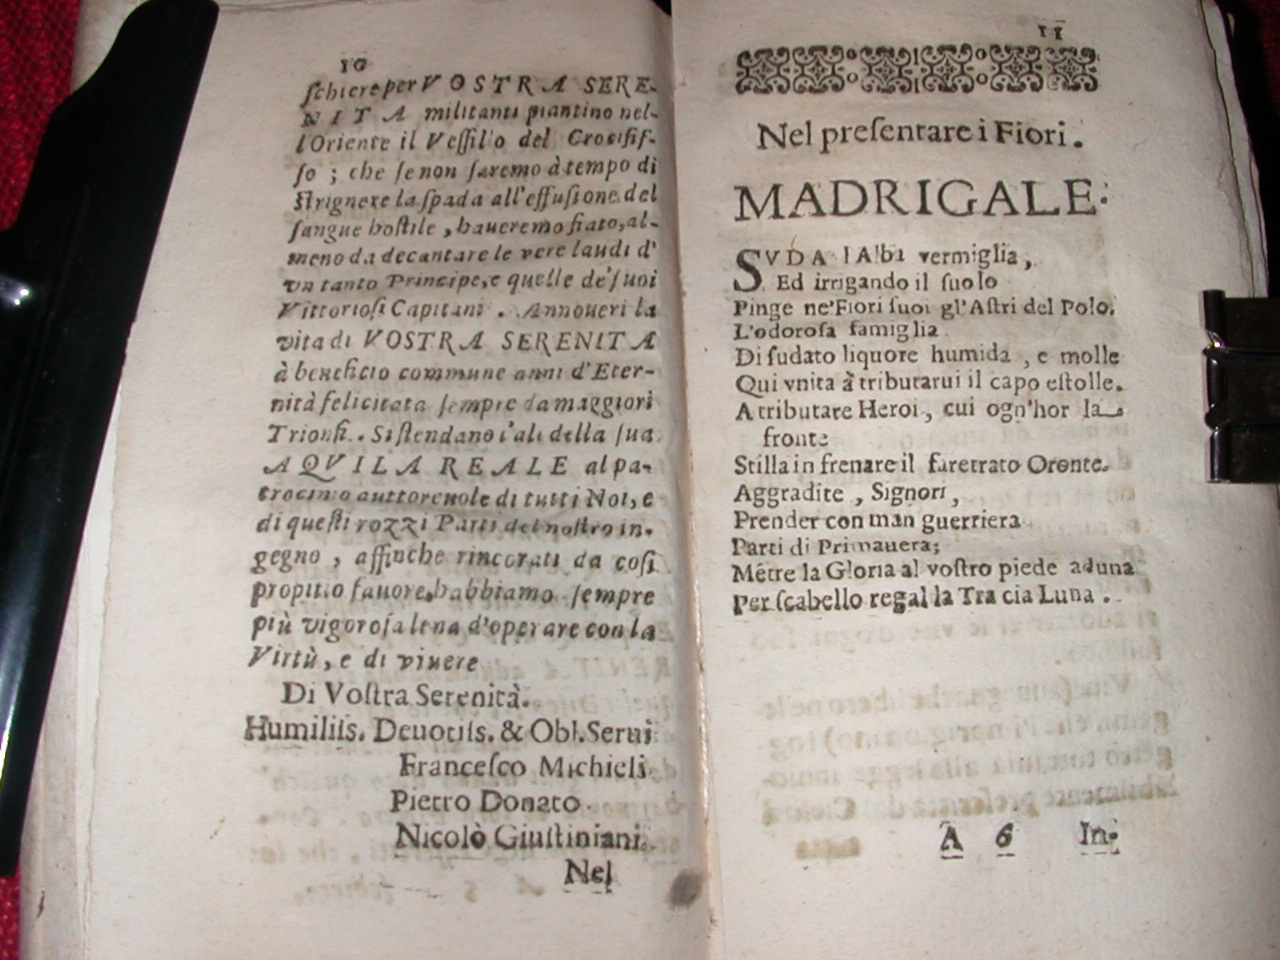 10
ſchiere per VOSTRA SERE-
NITA militanti piantino nel-
l'Oriente il Veſſillo del Crociſiſ-
ſo ; che ſe non ſaremo à tempo di
ſtrignere la ſpada all'effuſione del
ſangue hoſtile , haueremo fiato, al-
meno da decantare le vere laudi d'
vn tanto Principe, e quelle de' ſuoi
Vittorioſi Capitani . Annoueri la
vita di VOSTRA SERENITA
à beneficio commune anni d'Eter-
nità felicitata ſempre da maggiori
Trionfi. Si ſtendano l'ali della ſua
AQVILA REALE al pa-
trocinio auttoreuole di tutti Noi, e
di queſti rozzi Parti del noſtro in-
gegno , affinche rincorati da coſi
propitio fauore, habbiamo ſempre
più vigoroſa lena d'operare con la
Virtù, e di viuere
Di Voſtra Serenità.
Humiliſs. Deuotiſs. & Obl. Serui
Franceſco Michieli
Pietro Donato
Nicolò Giuſtiniani.
Nel
11
Nel preſentare i Fiori.
MADRIGALE.
SVDA l'Alba vermiglia ,
Ed irrigando il ſuolo
Pinge ne'Fiori ſuoi gl'Aſtri del Polo.
L'odoroſa famiglia
Di ſudato liquore humida , e molle
Qui vnita à tributarui il capo eſtolle.
A tributare Heroi , cui ogn'hor la
fronte
Stilla in frenare il faretrato Oronte.
Aggradite , Signori ,
Prender con man guerriera
Parti di Primauera;
Mẽtre la Gloria al voſtro piede aduna
Per ſcabello regal la Tracia Luna .
A 6 In-